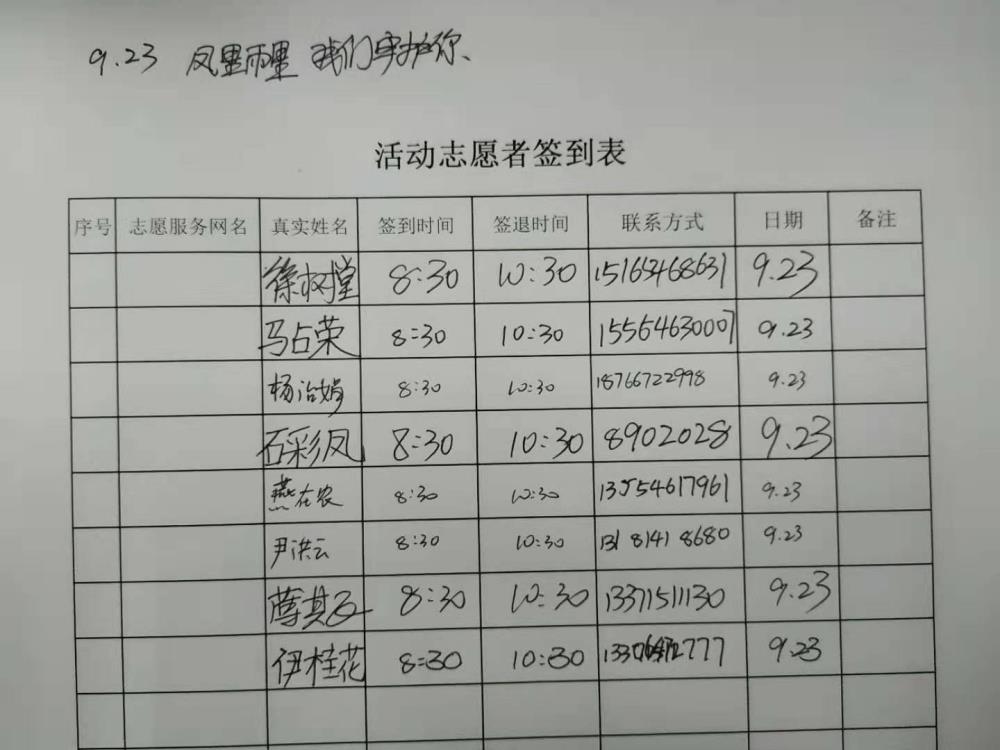 9.23 风里雨里 我们守护你、
活动志愿者签到表
序号 志愿服务网名 真实姓名 签到时间 签退时间 联系方式 日期 备注
徐树堂 8:30 10:30 15163468631 9.23
马占荣 8:30 10:30 15564630007 9.23
杨治娟 8:30 10:30 18766722998 9.23
石彩凤 8:30 10:30 8902028 9.23
燕在农 8:30 10:30 13554617961 9.23
尹洪云 8:30 10:30 131 8141 8680 9.23
薛其 8:30 10:30 13371511130 9.23
伊桂花 8:30 10:30 9.23